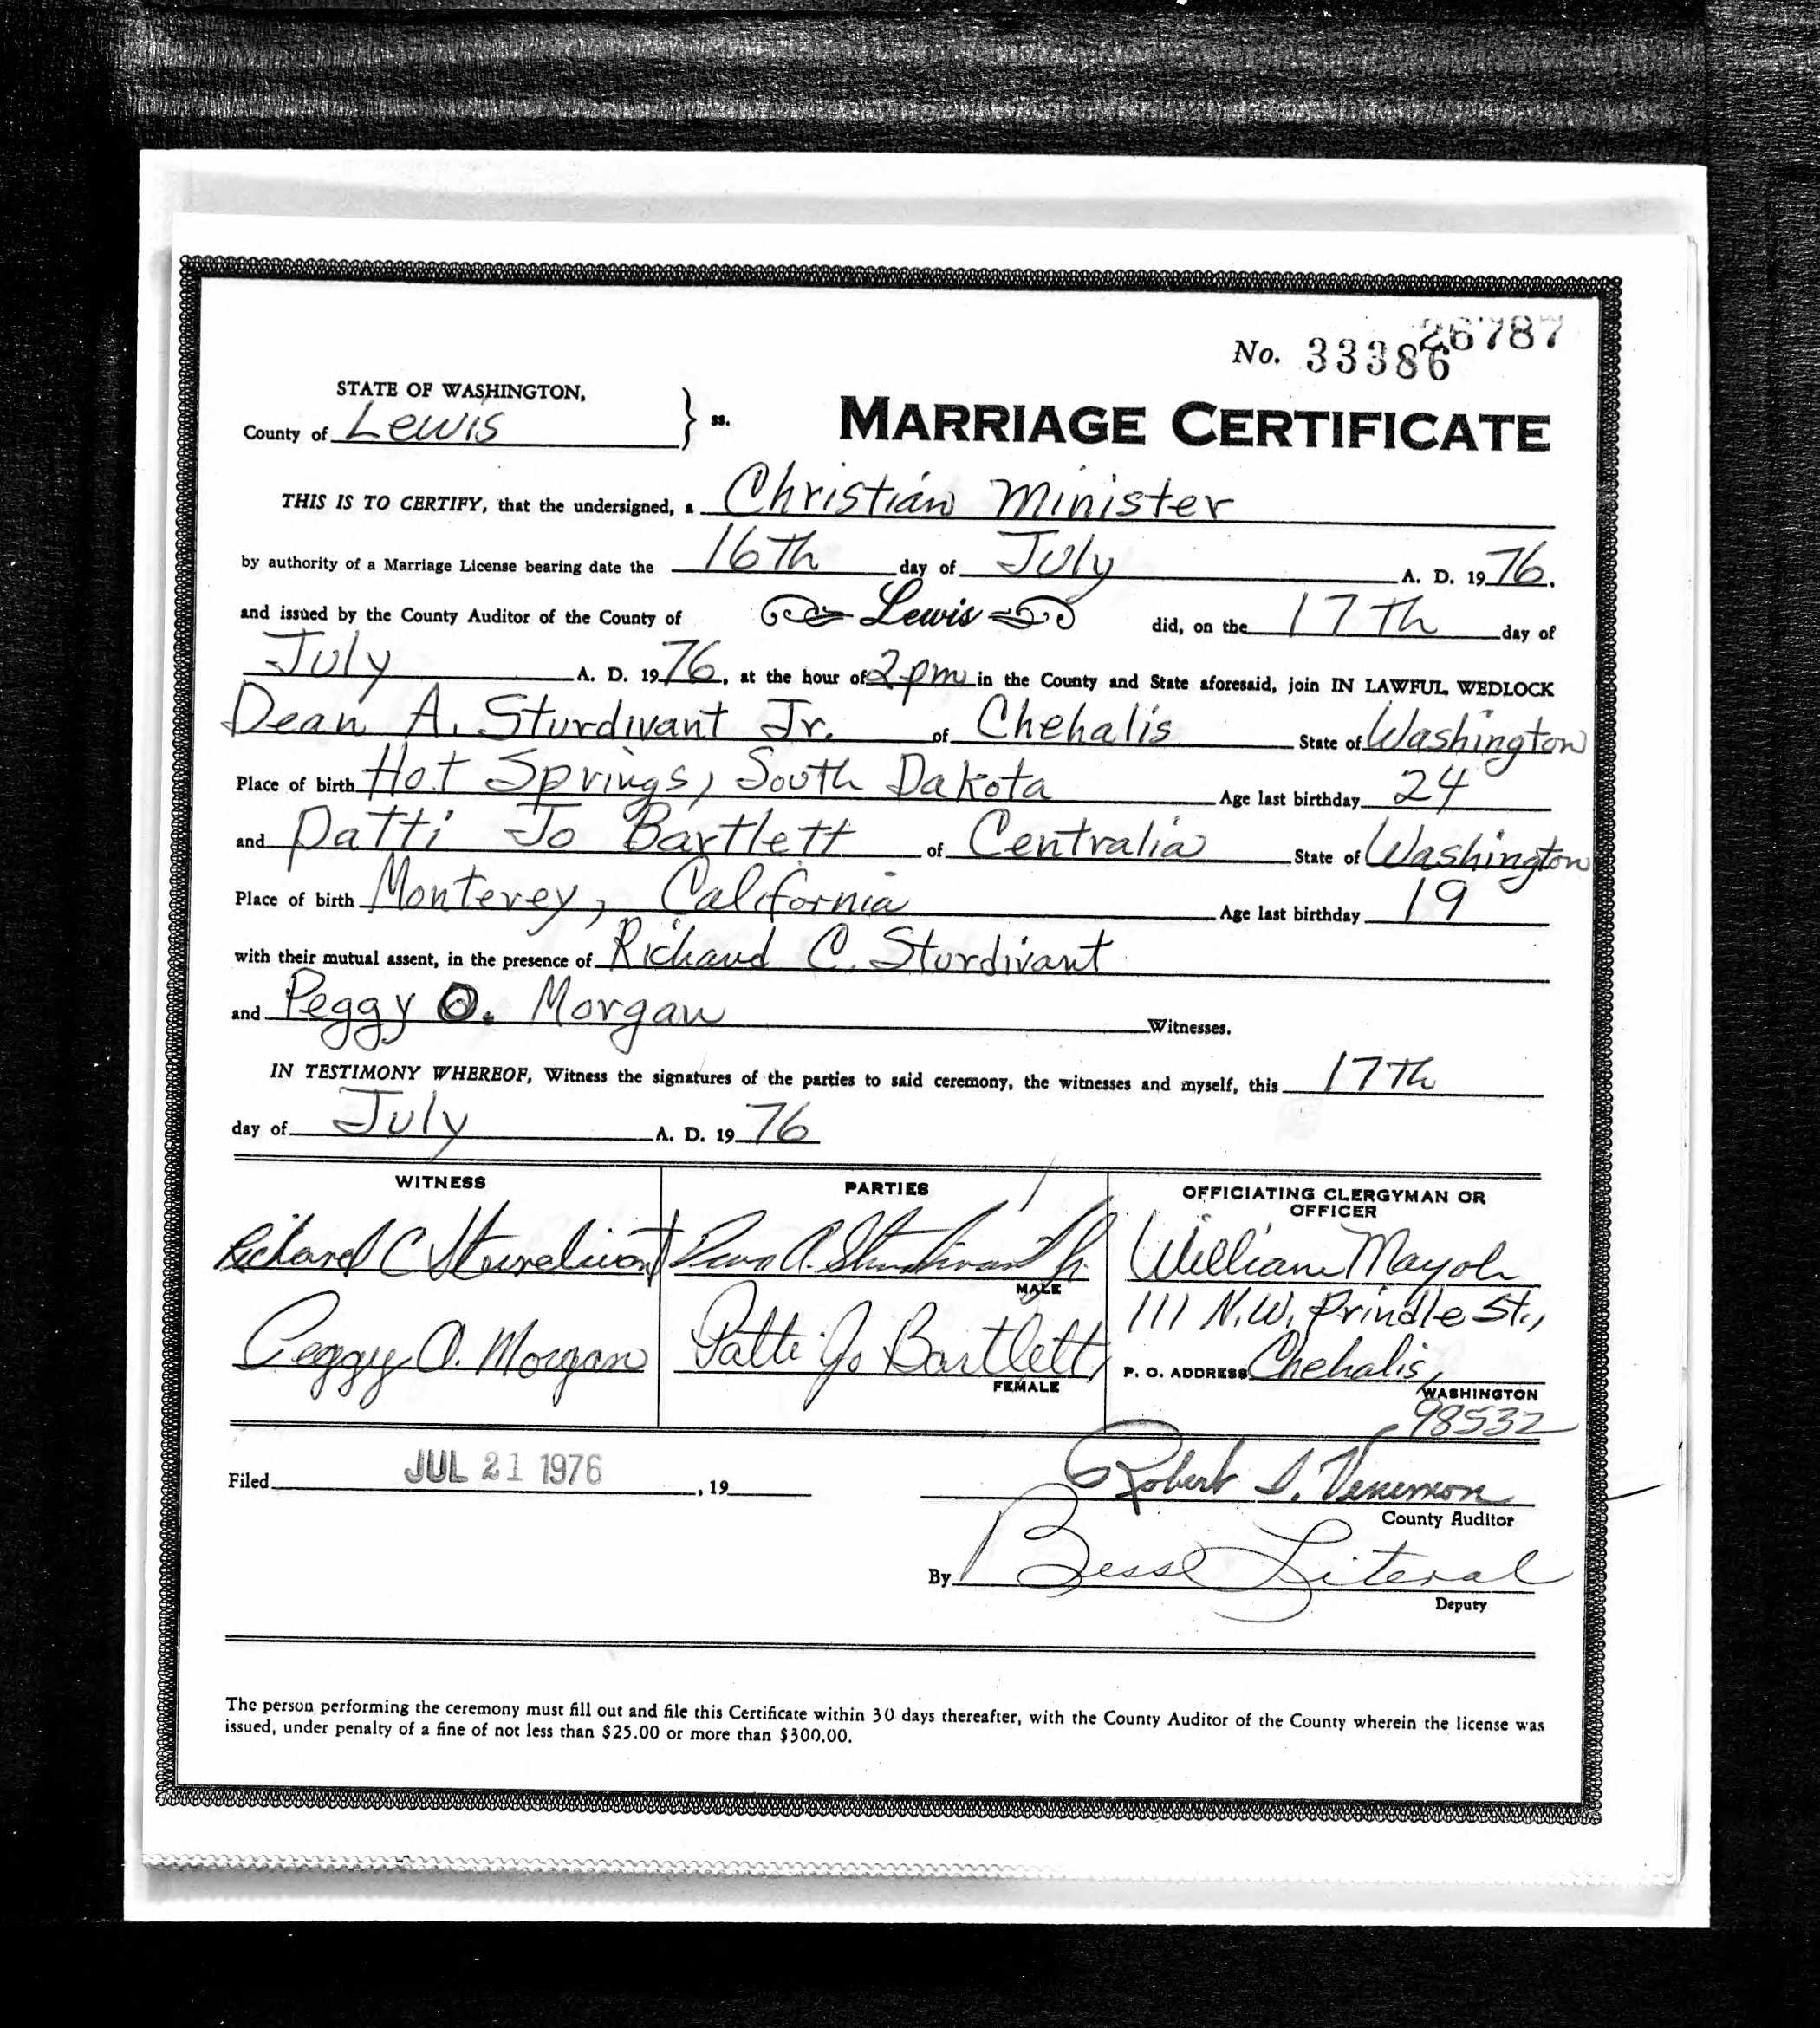 26787
No. 33386
STATE OF WASHINGTON,
County of Lewis } ss.
MARRIAGE CERTIFICATE
THIS IS TO CERTIFY, that the undersigned, a Christian Minister
by authority of a Marriage License bearing date the 16Th day of July A. D. 1976.
and issued by the County Auditor of the County of Lewis did, on the 17Th day of
July A. D. 1976, at the hour of 2pm in the County and State aforesaid, join IN LAWFUL WEDLOCK
Dean A. Sturdivant Jr. of Chehalis State of Washington
Place of birth Hot Springs, South Dakota Age last birthday 24
and Patti Jo Bartlett of Centralia State of Washington
Place of birth Monterey, California Age last birthday 19
with their mutual assent, in the presence of Richard C. Sturdivant
and Peggy O. Morgan Witnesses.
IN TESTIMONY WHEREOF, Witness the signatures of the parties to said ceremony, the witnesses and myself, this 17Th
day of July A. D. 1976
WITNESS
Richard C Sturdivant
Peggy O. Morgan
PARTIES
Dean A. Sturdivant Jr.
MALE
Patti Jo Bartlett
FEMALE
OFFICIATING CLERGYMAN OR
OFFICER
William Mayoh
111 N.W. Prindle St.,
P. O. ADDRESS Chehalis,
WASHINGTON
98532
Filed JUL 21 1976, 19
Robert S. Venemon
County Auditor
By Bess Literal
Deputy
The person performing the ceremony must fill out and file this Certificate within 30 days thereafter, with the County Auditor of the County wherein the license was
issued, under penalty of a fine of not less than $25.00 or more than $300.00.